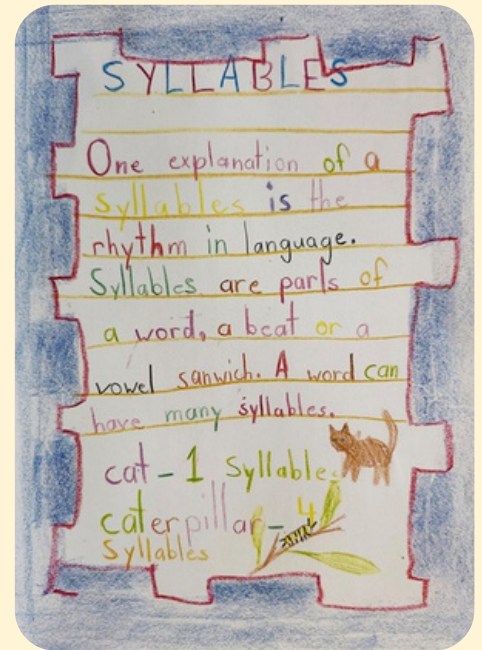 SYLLABLES
One explanation of a
syllables is the
rhythm in language.
Syllables are parts of
a word, a beat or a
vowel sanwich. A word can
have many syllables.
cat - 1 Syllable
caterpillar - 4
Syllables